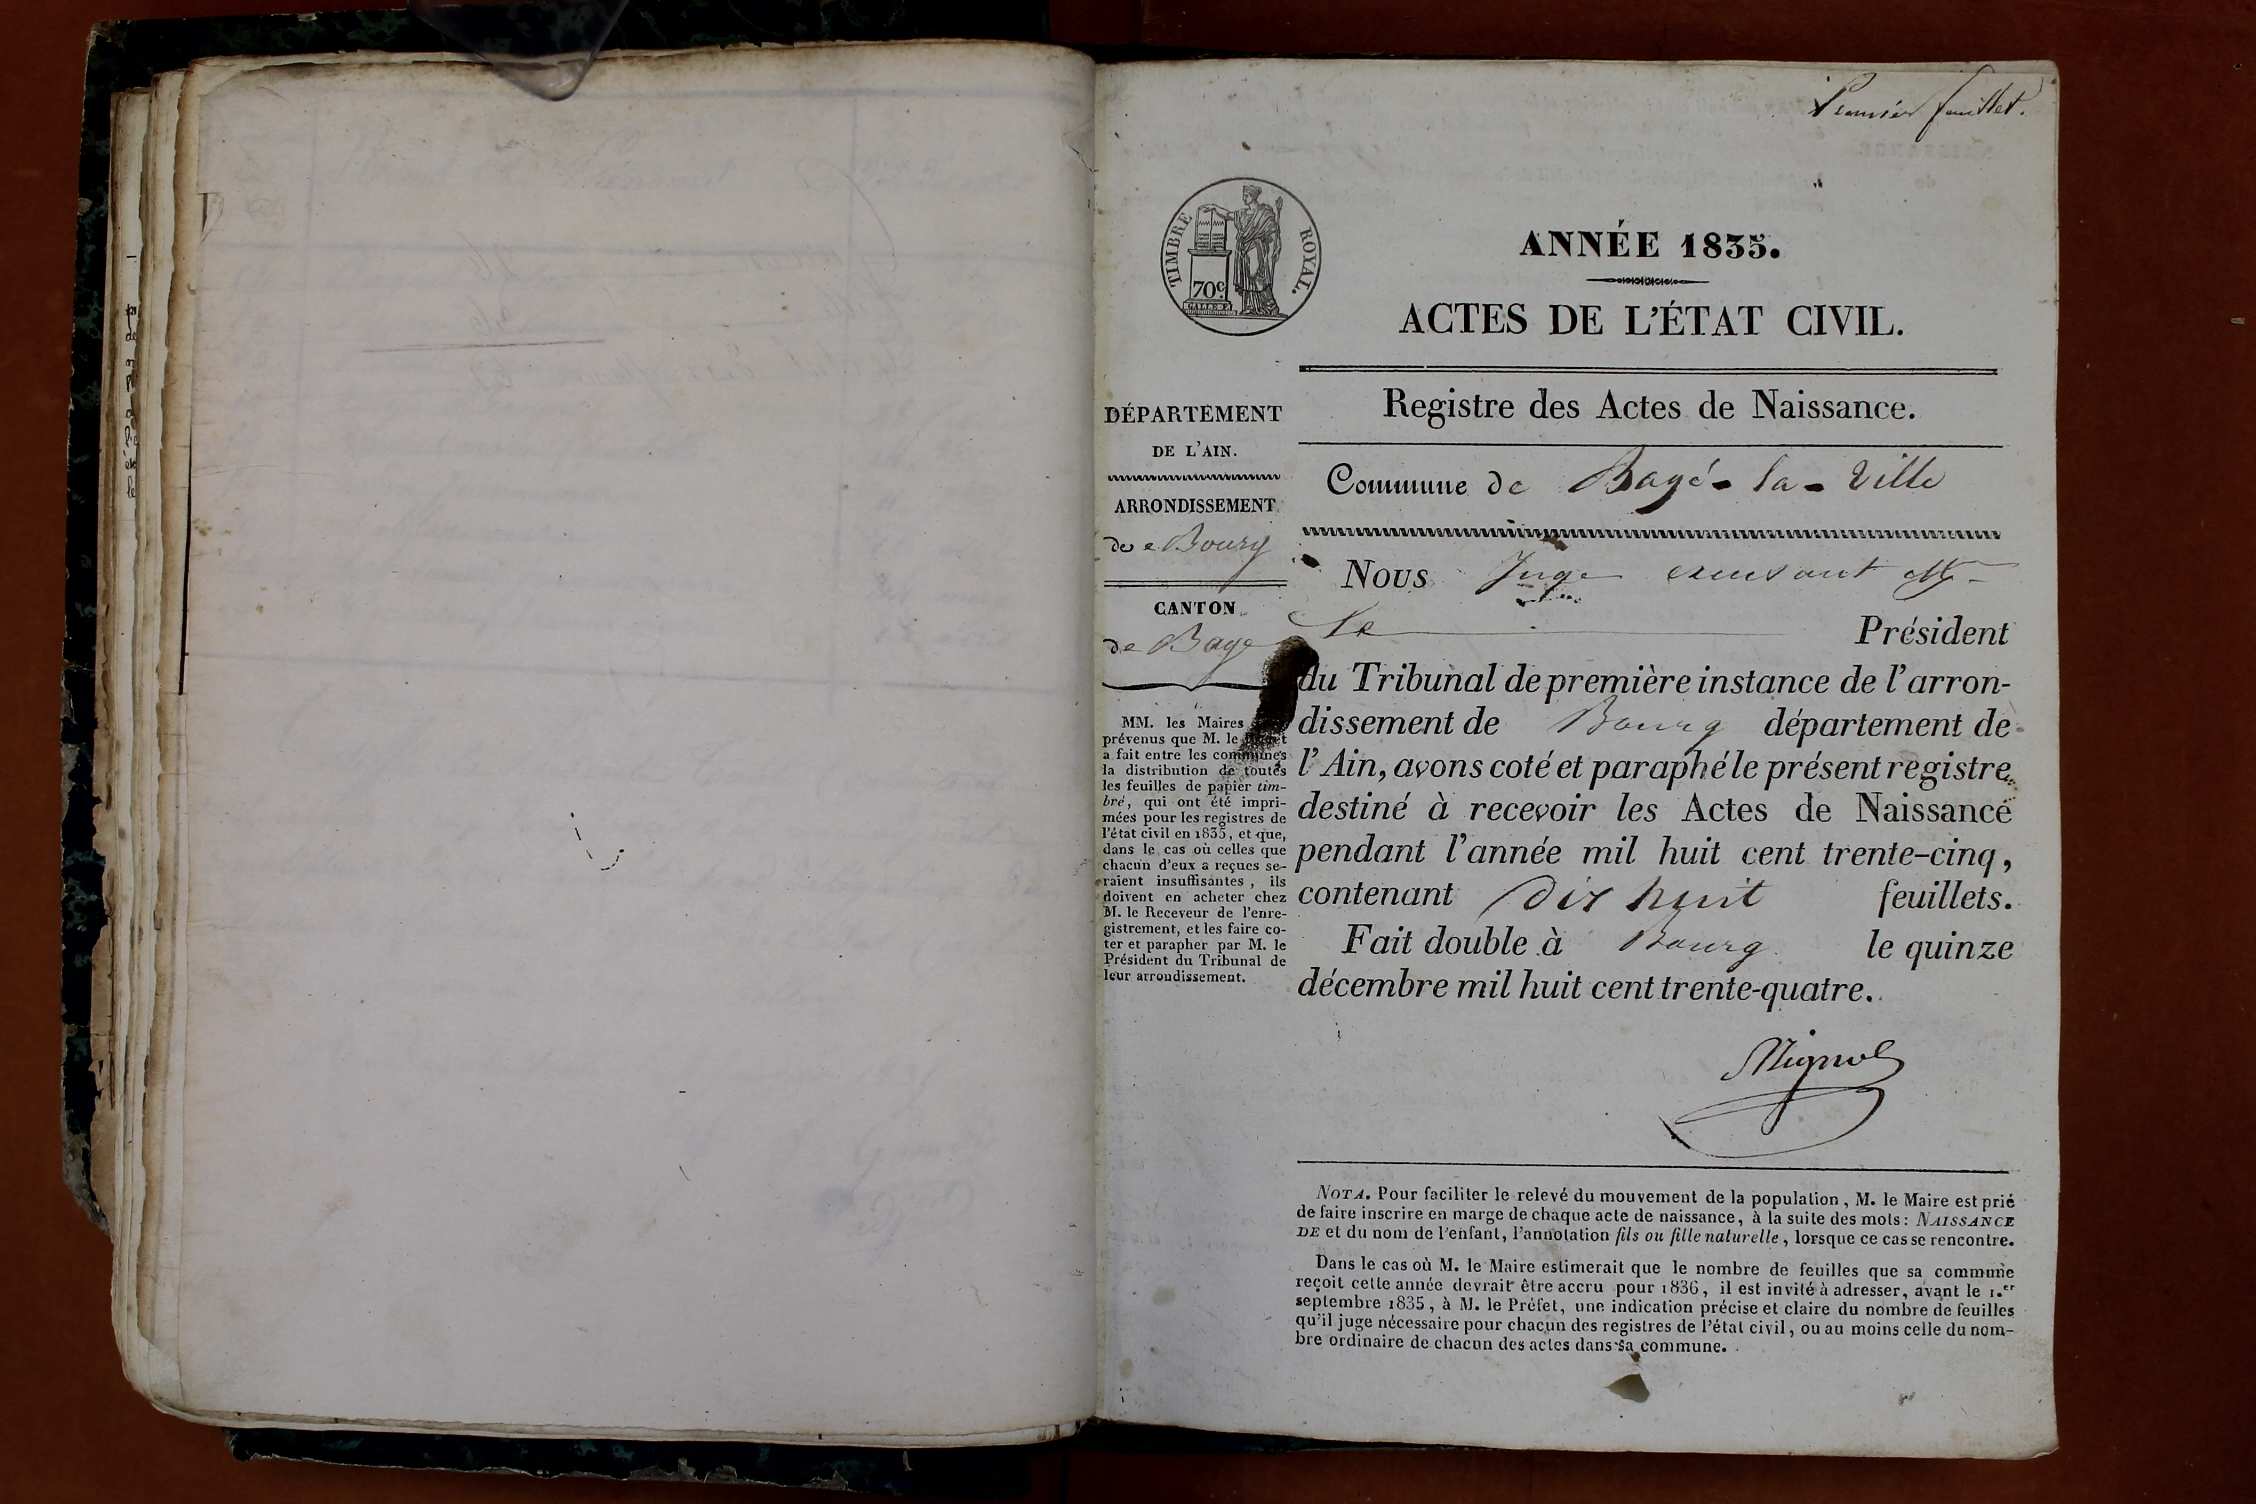 Premier feuillet.
TIMBRE ROYAL.
70 c
GALLE F.
ANNÉE 1835.
ACTES DE L'ÉTAT CIVIL.
Registre des Actes de Naissance.
Commune de Bagé-la-Ville
DÉPARTEMENT
DE L'AIN.
ARRONDISSEMENT
de Bourg
CANTON
de Bagé
MM. les Maires
prévenus que M. le
a fait entre les communes
la distribution de toutes
les feuilles de papier tim-
bré, qui ont été impri-
mées pour les registres de
l'état civil en 1835, et que,
dans le cas où celles que
chacun d'eux a reçues se-
raient insuffisantes, ils
doivent en acheter chez
M. le Receveur de l'enre-
gistrement, et les faire co-
ter et parapher par M. le
Président du Tribunal de
leur arrondissement.
Nous Juge M
le Président
du Tribunal de première instance de l'arron-
dissement de Bourg département de
l'Ain, avons coté et paraphé le présent registre
destiné à recevoir les Actes de Naissance
pendant l'année mil huit cent trente-cinq,
contenant dix huit feuillets.
Fait double à Bourg le quinze
décembre mil huit cent trente-quatre.
NOTA. Pour faciliter le relevé du mouvement de la population, M. le Maire est prié
de faire inscrire en marge de chaque acte de naissance, à la suite des mots: NAISSANCE
DE et du nom de l'enfant, l'annotation fils ou fille naturelle, lorsque ce cas se rencontre.
Dans le cas où M. le Maire estimerait que le nombre de feuilles que sa commune
reçoit cette année devrait être accru pour 1836, il est invité à adresser, avant le 1.er
septembre 1835, à M. le Préfet, une indication précise et claire du nombre de feuilles
qu'il juge nécessaire pour chacun des registres de l'état civil, ou au moins celle du nom-
bre ordinaire de chacun des actes dans sa commune.